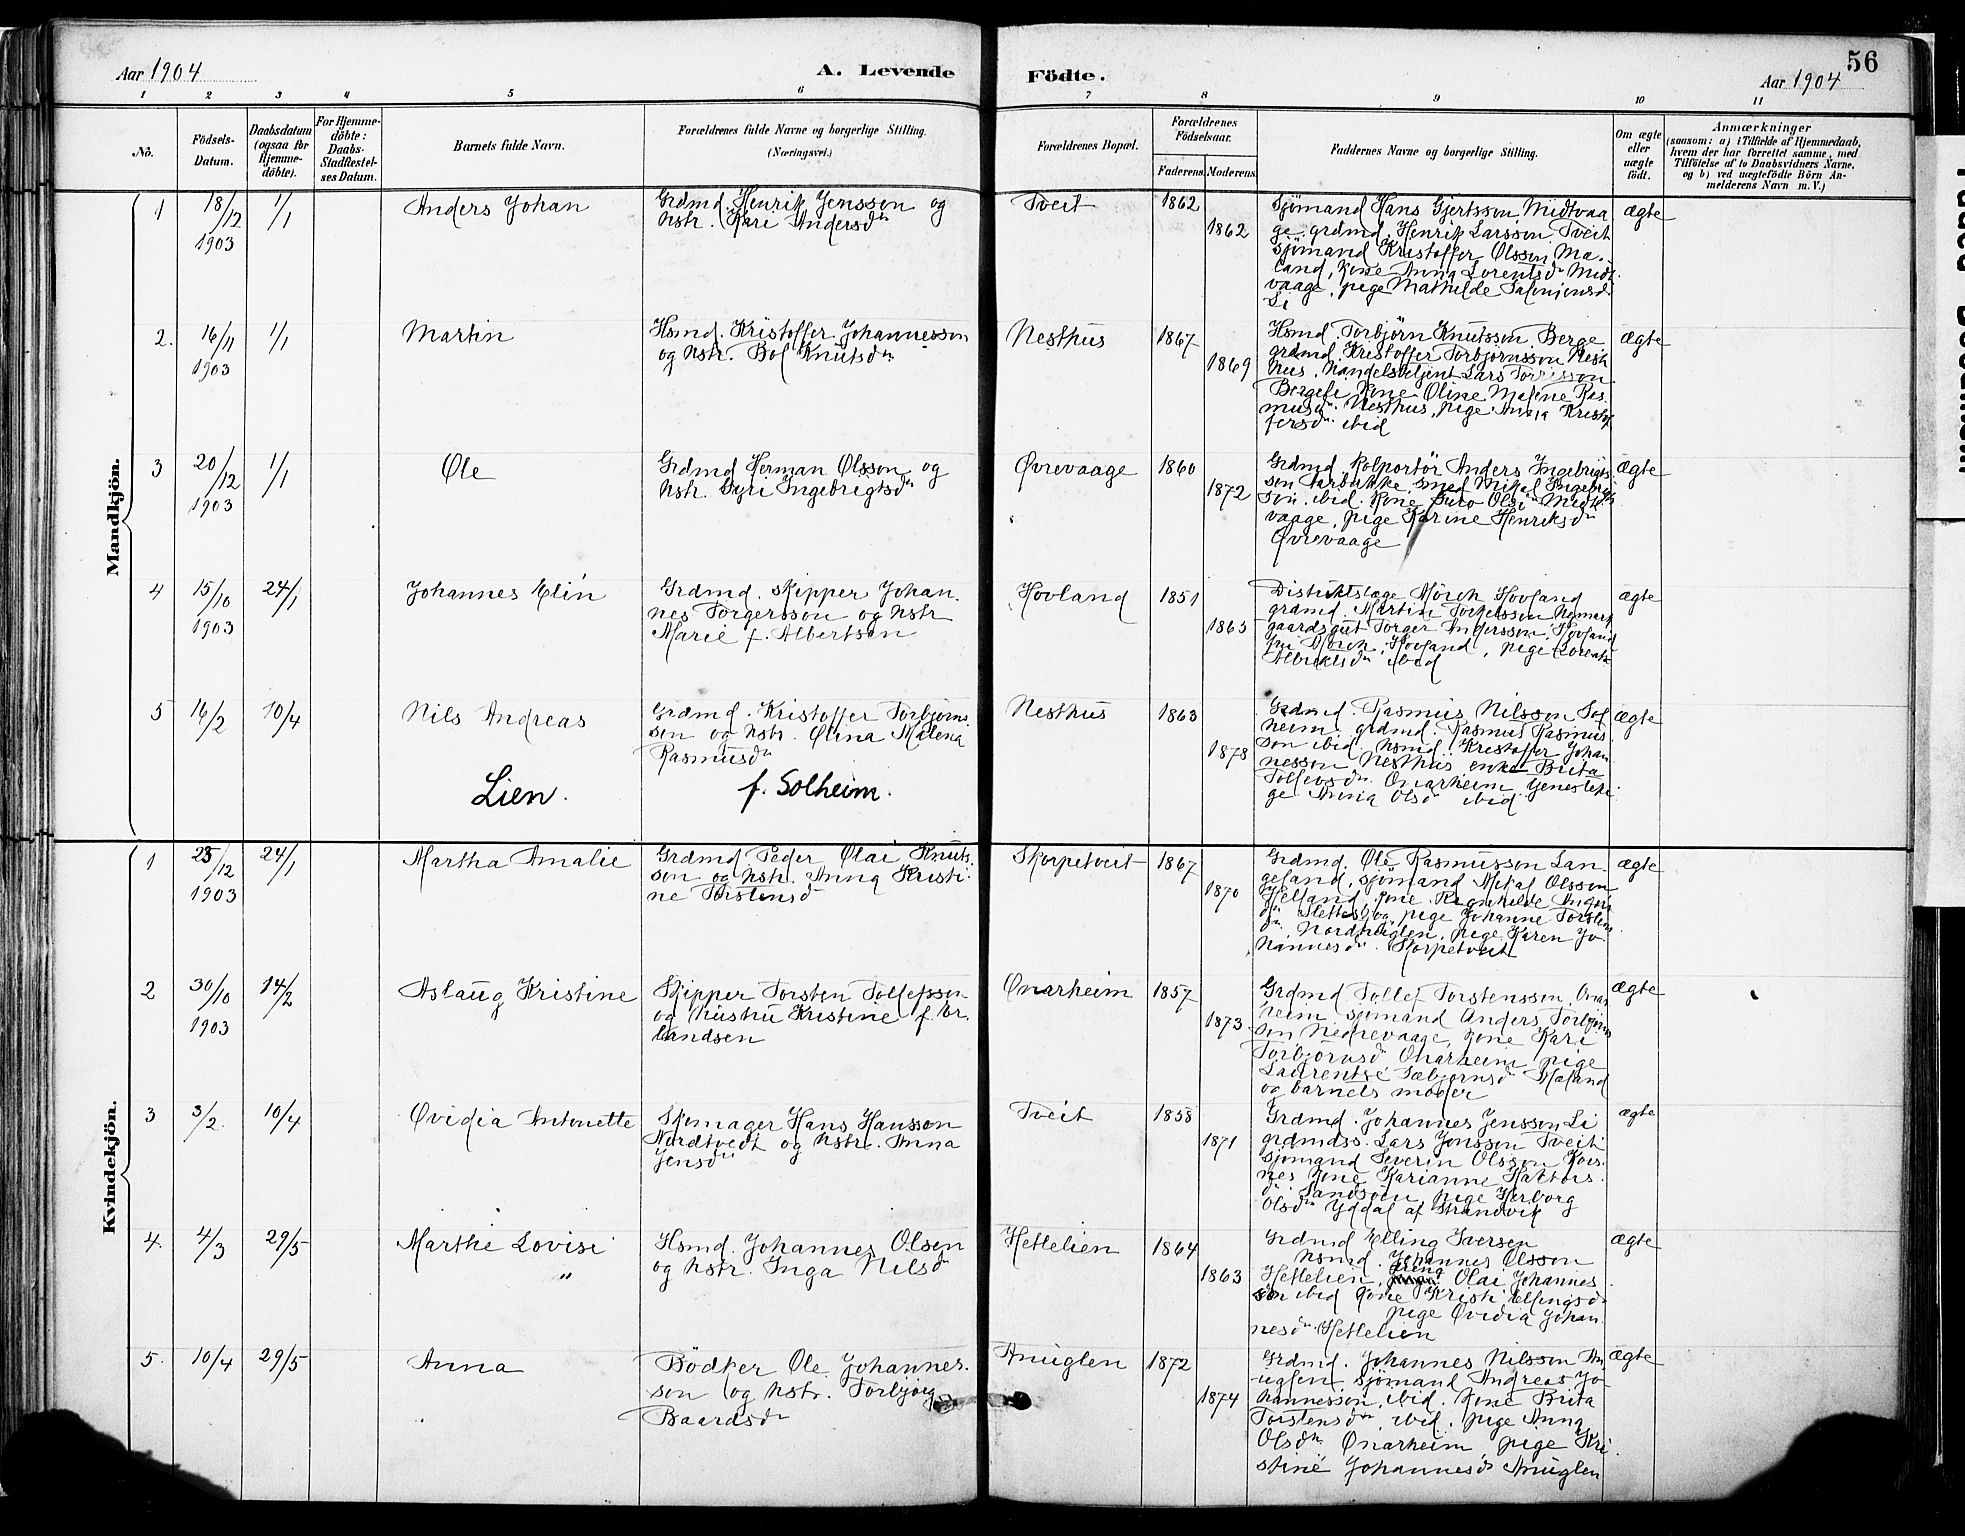 56
Aar 1904
A. Levende
Födte.
Aar 1904
1 2 3 4 5 6 7 8 9 10 11
No.
Födsels-
Datum.
Daabsdatum
(ogsaa for
Hjemme-
döbte).
For Hjemme-
döbte:
Daabs-
Stadfæstel-
ses Datum.
Barnets fulde Navn.
Forældrenes fulde Navne og borgerlige Stilling.
(Næringsvei.)
Forældrenes Bopæl.
Forældrenes
Födselsaar.
Faderens Moderens
Faddernes Navne og borgerlige Stilling.
Om ægte
eller
uægte
födt.
Anmærkninger
(saasom: a) i Tilfælde af Hjemmedaab,
hvem der har forrettet samme, med
Tilföielse af to Daabsvidners Navne,
og b) ved uægtefödte Börn An-
melderens Navn m. V.)
Mandkjön.
1
18/12
1903
1/1
Anders Johan
Grdmd. Henrik Jensson og
hstr. Kari Andersdn
Tveit
1862
1862
Sjömand Hans Gjertsson Midtvaa
ge. grdmd. Henrik Larsson Tveit
sjömand Kristoffer Olsson Mæ-
land, kone Anna Lorentsdn Midt
vaage, pige Mathilde
Li
ægte
2.
16/11
1903
1/1
Martin
Hsmd. Kristoffer Johannesson
og hstr. Bol Knutsdn
Nesthus
1867
1869
Hsmd. Torbjörn Knutsson Berge
grdmd. Kristoffer Torbjörnsson Nest
hus, handelsbetjent Lars
kone Oline Malene Ras
musdn. Nesthus, pige Anna Kristof
fersdn ibid
ægte
3
20/12
1903
1/1
Ole
Grdmd Herman Olsson og
hstr. Guri Ingebrigtsdn
Øvrevaage
1860
1872
Grdmd. kolportör Anders Ingebrigts
son smed Mikal Ingebrigt
son ibid. kone Guro Olsdn Midt
vaage, pige Karine Henriksdn
Øvrevaage
ægte
4
15/10
1903
24/1
Johannes Elin
Grdmd. skipper Johan
nes Torgersson og hstr
Marie f. Albertsen
Hovland
1851
1865
Distriktslæge Mörch Hovland
grdmd. Martin Torkelsson
gaardsgut Torger Anderssen, Hovland
fru Mörch, Hovland, pige
ibid
ægte
5
16/2
10/4
Nils Andreas
Lien.
Grdmd. Kristoffer Torbjörns
son og hstr. Olina Malena
Rasmusdn
f. Solheim.
Nesthus
1863
1878
Grdmd. Rasmus Nilsson Sol
heim. grdmd. Rasmus Rasmus
son ibid. hsmd. Kristoffer Johan
nesson Nesthus enke Brita
Tollefsdn. Onarheim
ge Anna Olsd ibid
ægte
Kvindekjön.
1
23/12
1903
24/1
Martha Amalie
Grdmd. Peder Olai Knuts
son og hstr. Anna Kristi
ne Torstensd
Skorpetveit
1867
1870
Grdmd. Ole Rasmusson Lan
geland, sjömand Mikal Olsson
Helland, kone
dn pige Johanne Torsten
dn. Nordhuglen, pige Karen Jo
hannesdn. Skorpetveit
ægte
2
30/10
1903
14/2
Aslaug Kristine
Skipper Torsten Tollefsson
og hustru Kristine f. Er
landsen
Onarheim
1857
1873
Grdmd Tollef Torstensson, Onar
heim sjömand Anders Torbjörns
son Nedrevaage, kone Kari
Torbjörnsdn Onarheim, pige
Laurentse Sæbjörnsdn Mæland
og barnets moder
ægte
3
3/2.
10/4
Ovidia Antonette
Skomager Hans Hansson
Nordtvedt og hstr. Anna
Jensdn
Tveit
1858
1871
Grdmd. Johannes Jensson Li
grdmdss. Lars Jonsson Tveit
sjömand Severin Olsson
nes kone Karianne
dn. Sandvin, pige Herborg
Olsdn Yddal af Strandvik
ægte
4.
4/3
29/5
Marthe Lovise
Hsmd. Johannes Olsen
og hstr. Inga Nilsd
Hetlelien
1864
1863
Grdmd Elling Iversen
hsmd. Johannes Olsson
Hetlelien, dreng Olai Johannes
son ibid kone Kristi Ellingsd.
pige Ovidia Johan
nesdn. Hetlelien
ægte
5.
10/4
29/5
Anna
Bödker Ole Johannes
son og hstr. Torbjörg
Baardsdn
Anuglen
1872
1874
Grdmd. Johannes Nilsson An
uglen sjömand Andreas Jo
hannesson, ibid. kone Brita
Torstensdn, ibid. pige Anna
Olsdn. Onarheim, pige Kri
stine Johannesdn Anuglen
ægte